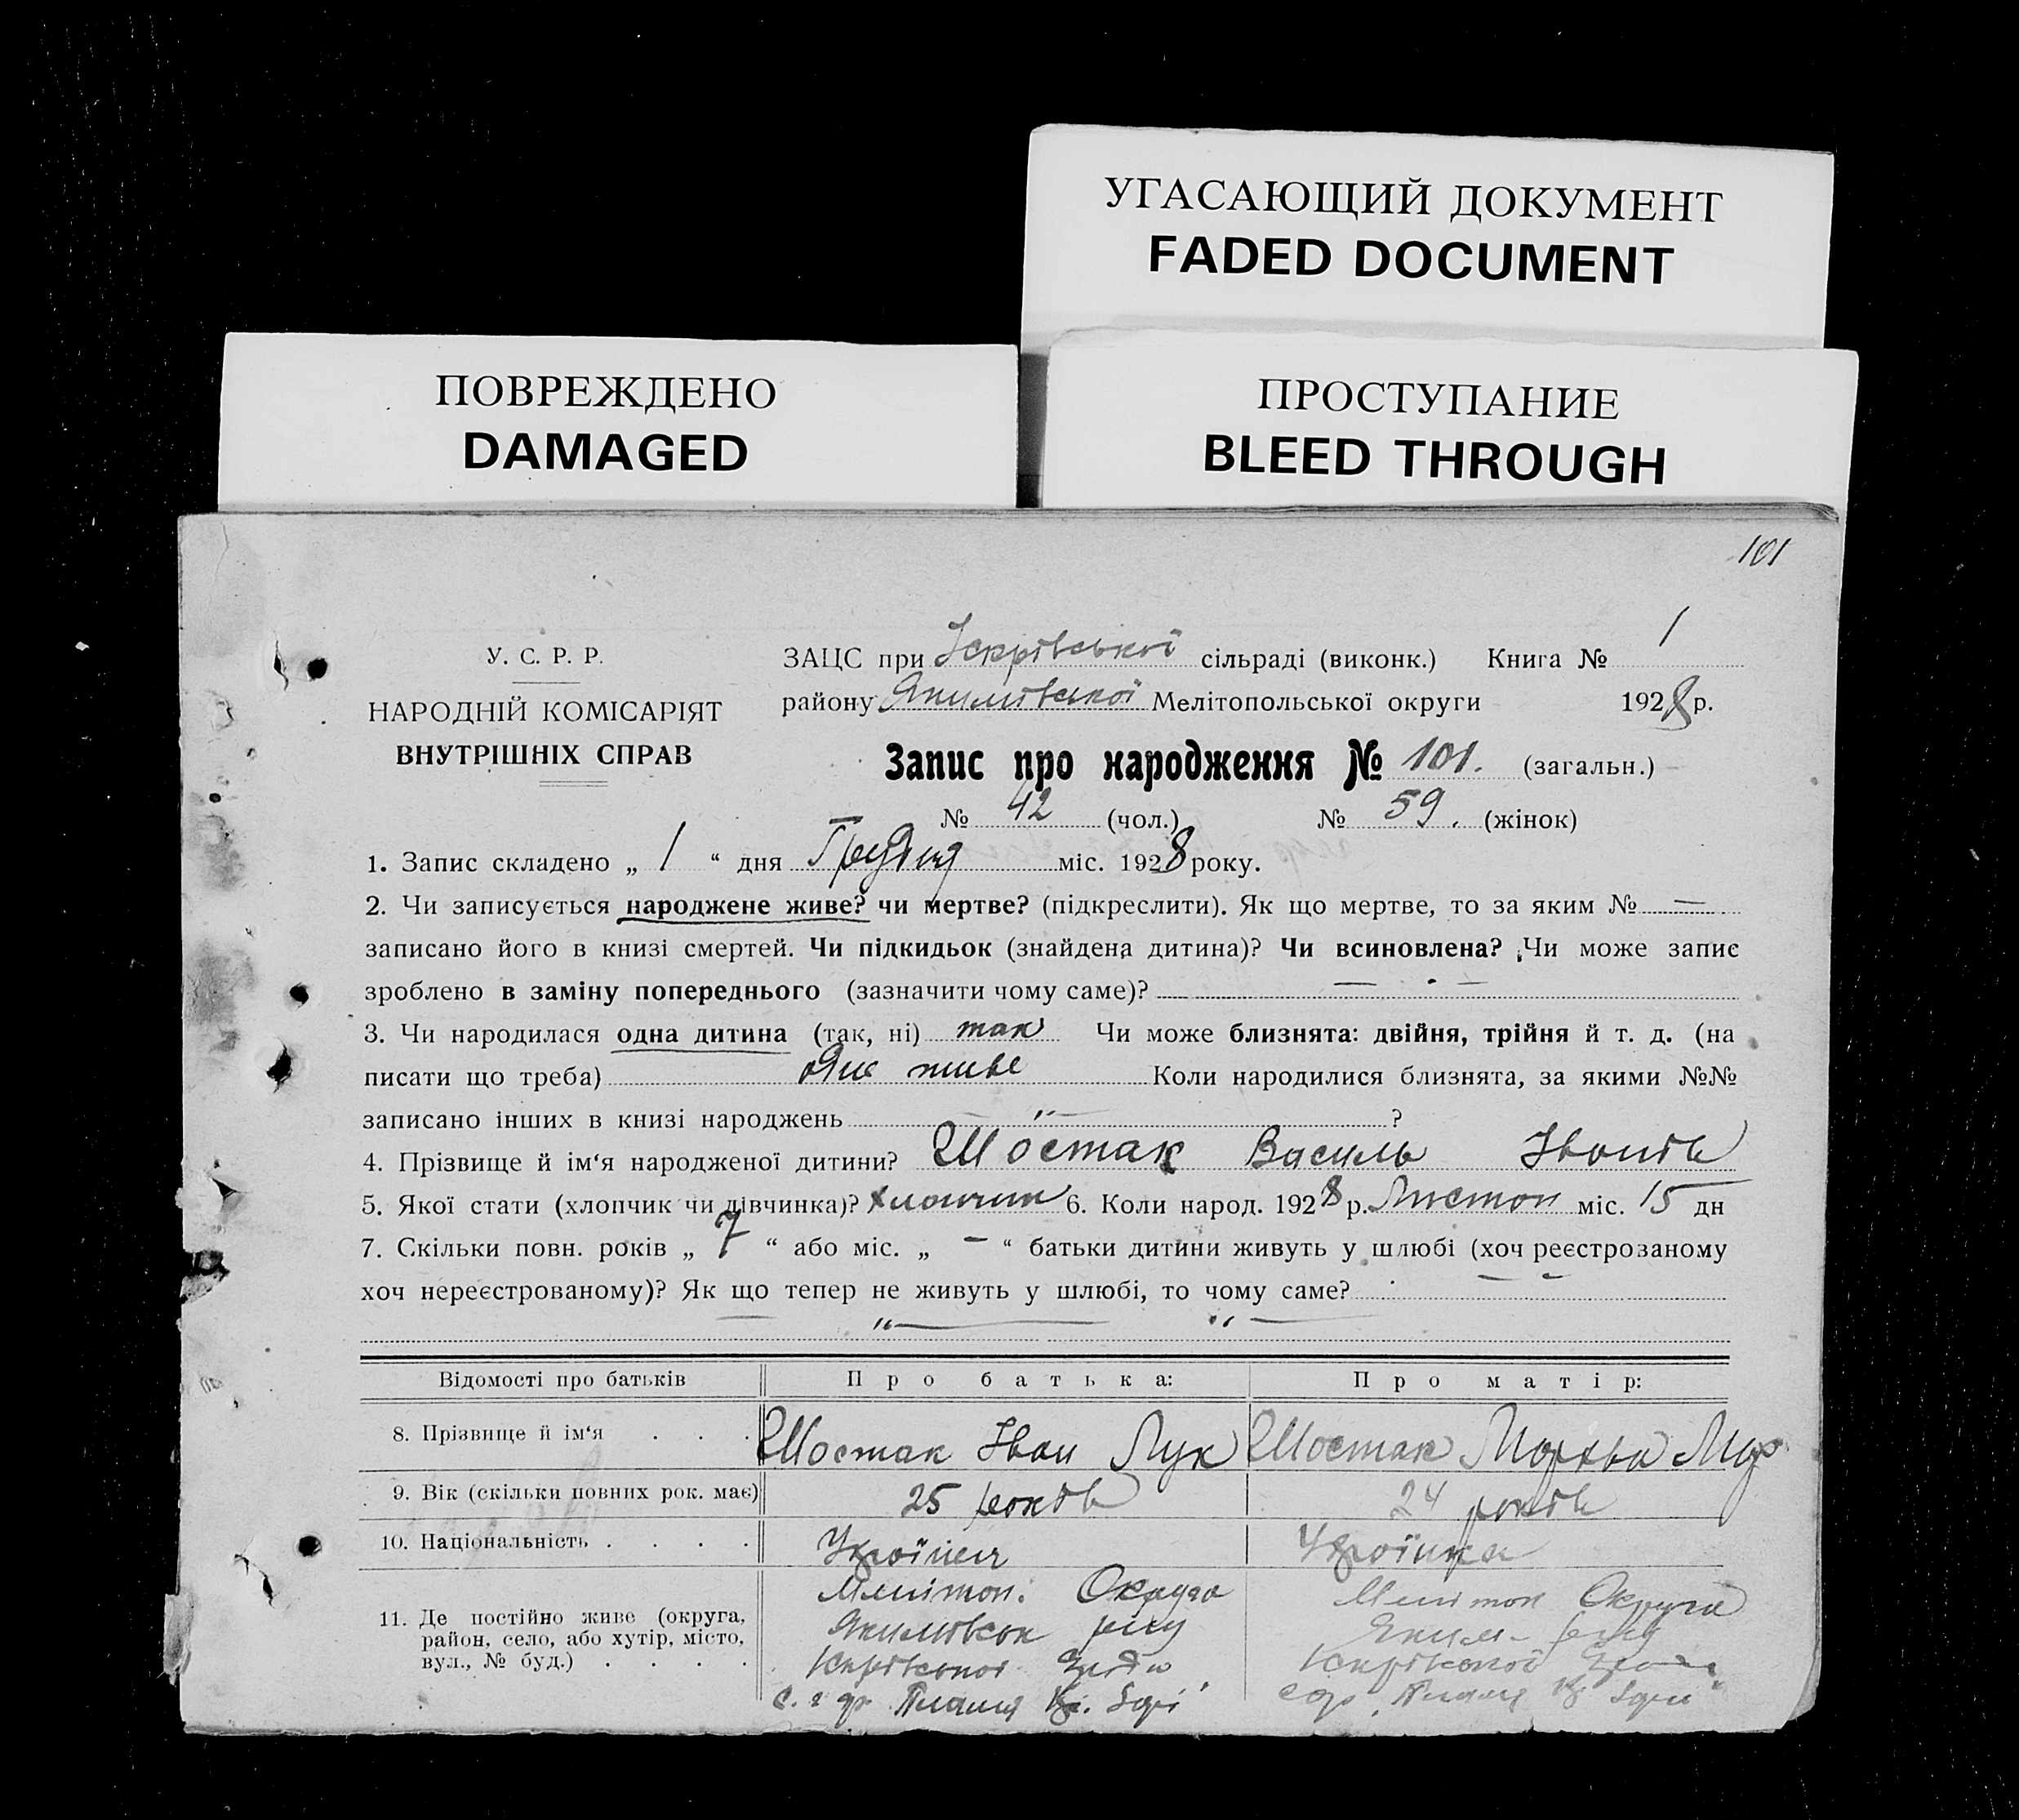 УГАСАЮЩИЙ ДОКУМЕНТ
FADED DOCUMENT
ПОВРЕЖДЕНО
DAMAGED
ПРОСТУПАНИЕ
BLEED THROUGH
101
У. С. Р. Р.
НАРОДНІЙ КОМІСАРІЯТ
ВНУТРІШНІХ СПРАВ
ЗАЦС при Іскрівської сільраді (виконк.) Книга № 1
району Якимівської Мелітопольської округи 1928 р.
Запис про народження № 101. (загальн.)
№ 42 (чол.) № 59. (жінок)
1. Запис складено „ 1 “ дня Грудня міс. 1928 року.
2. Чи записується народжене живе? чи мертве? (підкреслити). Як що мертве, то за яким № —
записано його в книзі смертей. Чи підкидьок (знайдена дитина)? Чи всиновлена? Чи може запис
зроблено в заміну попереднього (зазначити чому саме)? —
3. Чи народилася одна дитина (так, ні) так Чи може близнята: двійня, трійня й т. д. (на
писати що треба) живе Коли народилися близнята, за якими №№
записано інших в книзі народжень — „ — ?
4. Прізвище й ім‘я народженої дитини? Шостак Василь Іванів
5. Якої стати (хлопчик чи дівчинка)? хлопчик 6. Коли народ. 1928 р. Листоп міс. 15 дн
7. Скільки повн. років „ 7 “ або міс. „ — “ батьки дитини живуть у шлюбі (хоч реєстрозаному
хоч нереєстрованому)? Як що тепер не живуть у шлюбі, то чому саме?
Відомості про батьків Про батька: Про матір:
8. Прізвище й ім‘я . . . Шостак Іван Лук Шостак Мар
9. Вік (скільки повних рок. має) 25 років 24 років
10. Національність . . . . Українец Українка
11. Де постійно живе (округа, район, село, або хутір, місто, вул., № буд.) . . . .
Мелітоп. Округа Меліт оп Округа
Якимівськ р-ну Яким- р-ну
Іскрівської Іскрівської